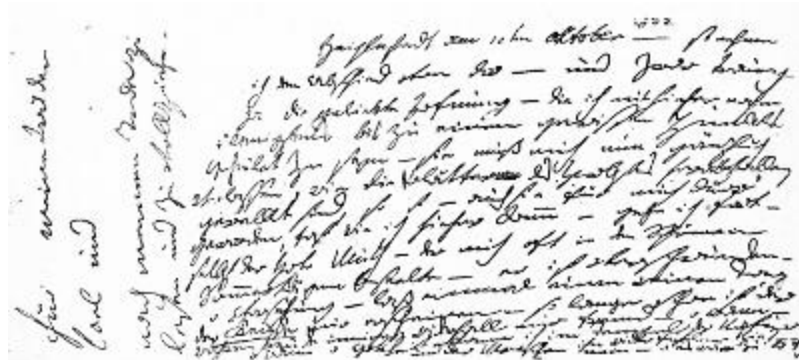 Für meine Brüder
Carl und
nach meinem Tode zu
lesen und zu vollziehen –
Heiglnstadt am 10ten Oktober 1802 so nehme
ich den Abschied von dir – und zwar traurig
ja die geliebte Hofnung – die ich mit hieher nahm
wenigstens bis zu einem gewissen Punkte
geheilet zu seyn – sie muß mich nun gänzlich
verlassen, wie die blätter des Herbstes herabfallen
gewelkt sind so ist – auch sie für mich dürr
geworden, fast wie ich hieher kamm – gehe ich fort –
selbst der Hohe Muth – der mich oft in den Schönen
Sommertägen beseelte – er ist verschwunden –
o Vorsehung – laß einmal einen reinen Tag
der Freude mir erscheinen – so lange schon ist der